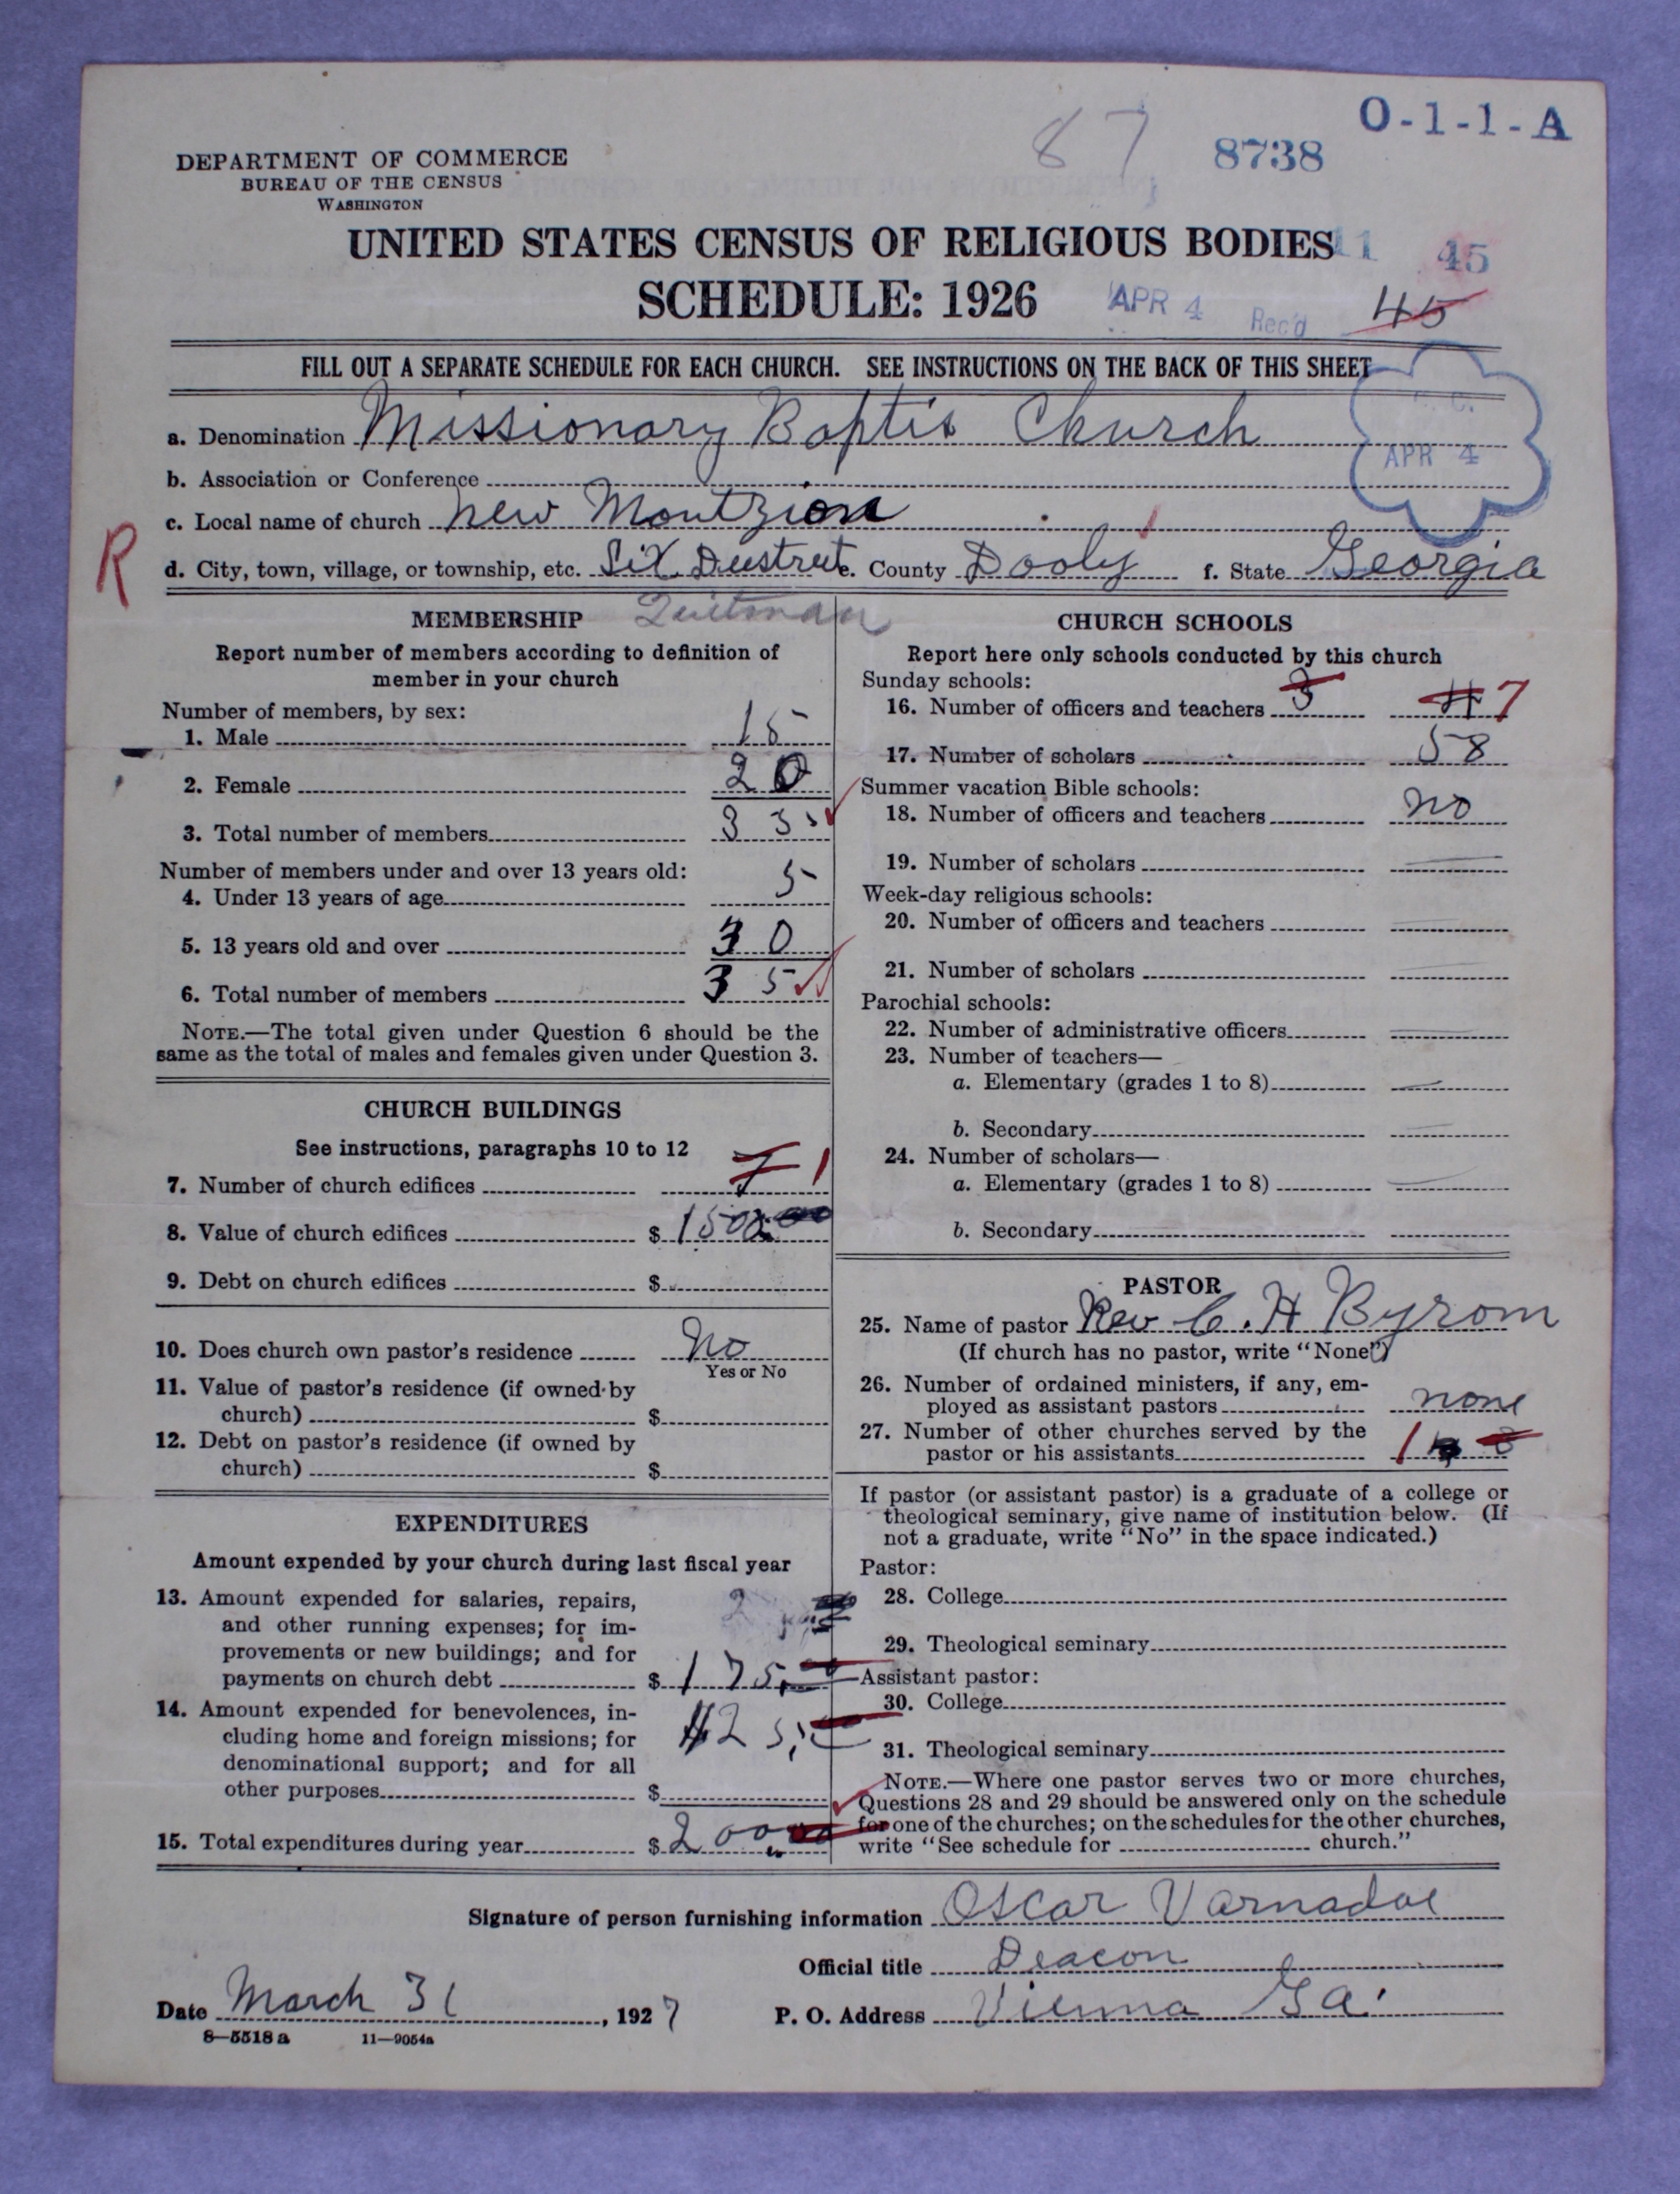 O-1-1-A
87
8738
DEPARTMENT OF COMMERCE
BUREAU OF THE CENSUS
WASHINGTON
UNITED STATES CENSUS OF RELIGIOUS BODIES
11 45
SCHEDULE: 1926
APR 4 Rec'd
45
FILL OUT A SEPARATE SCHEDULE FOR EACH CHURCH. SEE INSTRUCTIONS ON THE BACK OF THIS SHEET
a. Denomination Missionary Baptis Church
APR 4
b. Association or Conference
c. Local name of church New Montzion
R
d. City, town, village, or township, etc. Six Deestreet e. County Dooly f. State Georgia
Quitman
MEMBERSHIP
Report number of members according to definition of
member in your church
Number of members, by sex:
1. Male 15
2. Female 20
3. Total number of members 35
Number of members under and over 13 years old:
4. Under 13 years of age 5
5. 13 years old and over 30
6. Total number of members 35
NOTE.—The total given under Question 6 should be the
same as the total of males and females given under Question 3.
CHURCH BUILDINGS
See instructions, paragraphs 10 to 12
7. Number of church edifices 1
8. Value of church edifices $ 1500
9. Debt on church edifices $
10. Does church own pastor's residence No
Yes or No
11. Value of pastor's residence (if owned by
church) $
12. Debt on pastor's residence (if owned by
church) $
EXPENDITURES
Amount expended by your church during last fiscal year
13. Amount expended for salaries, repairs,
and other running expenses; for im-
provements or new buildings; and for
payments on church debt $ 175
14. Amount expended for benevolences, in-
cluding home and foreign missions; for
denominational support; and for all
other purposes $ 25
15. Total expenditures during year $ 200
CHURCH SCHOOLS
Report here only schools conducted by this church
Sunday schools:
16. Number of officers and teachers 3 4 7
17. Number of scholars 58
Summer vacation Bible schools:
18. Number of officers and teachers no
19. Number of scholars
Week-day religious schools:
20. Number of officers and teachers
21. Number of scholars
Parochial schools:
22. Number of administrative officers
23. Number of teachers—
a. Elementary (grades 1 to 8)
b. Secondary
24. Number of scholars—
a. Elementary (grades 1 to 8)
b. Secondary
PASTOR
25. Name of pastor Rev C. H Byrom
(If church has no pastor, write "None")
26. Number of ordained ministers, if any, em-
ployed as assistant pastors none
27. Number of other churches served by the
pastor or his assistants 1
If pastor (or assistant pastor) is a graduate of a college or
theological seminary, give name of institution below. (If
not a graduate, write "No" in the space indicated.)
Pastor:
28. College
29. Theological seminary
Assistant pastor:
30. College
31. Theological seminary
NOTE.—Where one pastor serves two or more churches,
Questions 28 and 29 should be answered only on the schedule
for one of the churches; on the schedules for the other churches,
write "See schedule for church."
Signature of person furnishing information Oscar Varnadoe
Official title Deacon
Date March 31, 1927 P. O. Address Vienna Ga.
8—5518a 11—9054a